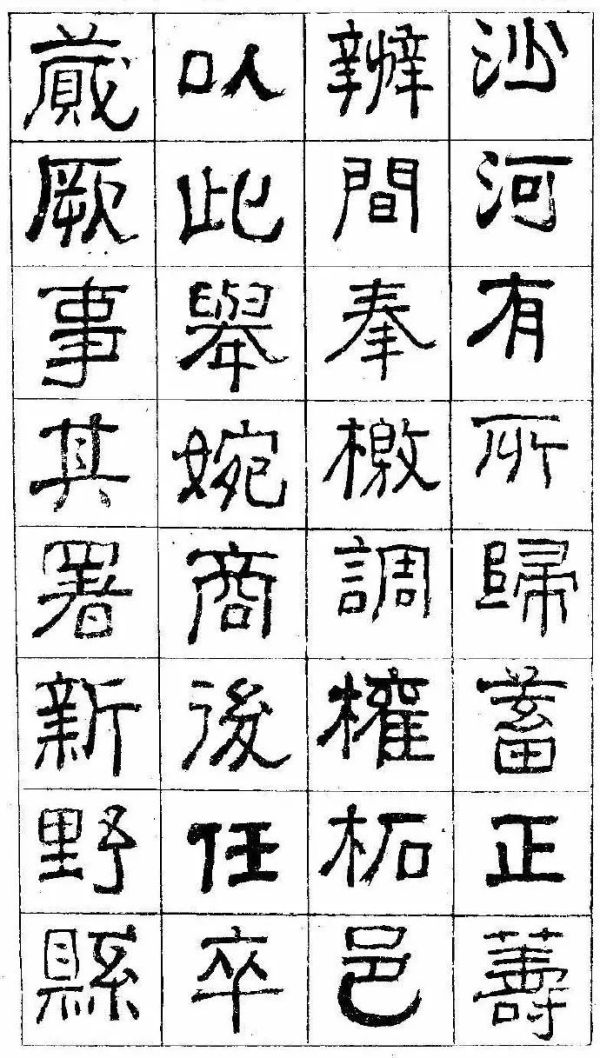 沙河有所歸蓄正籌
辦間奉檄調權柘邑
以此舉婉商後任卒
蕆厥事其署新野縣